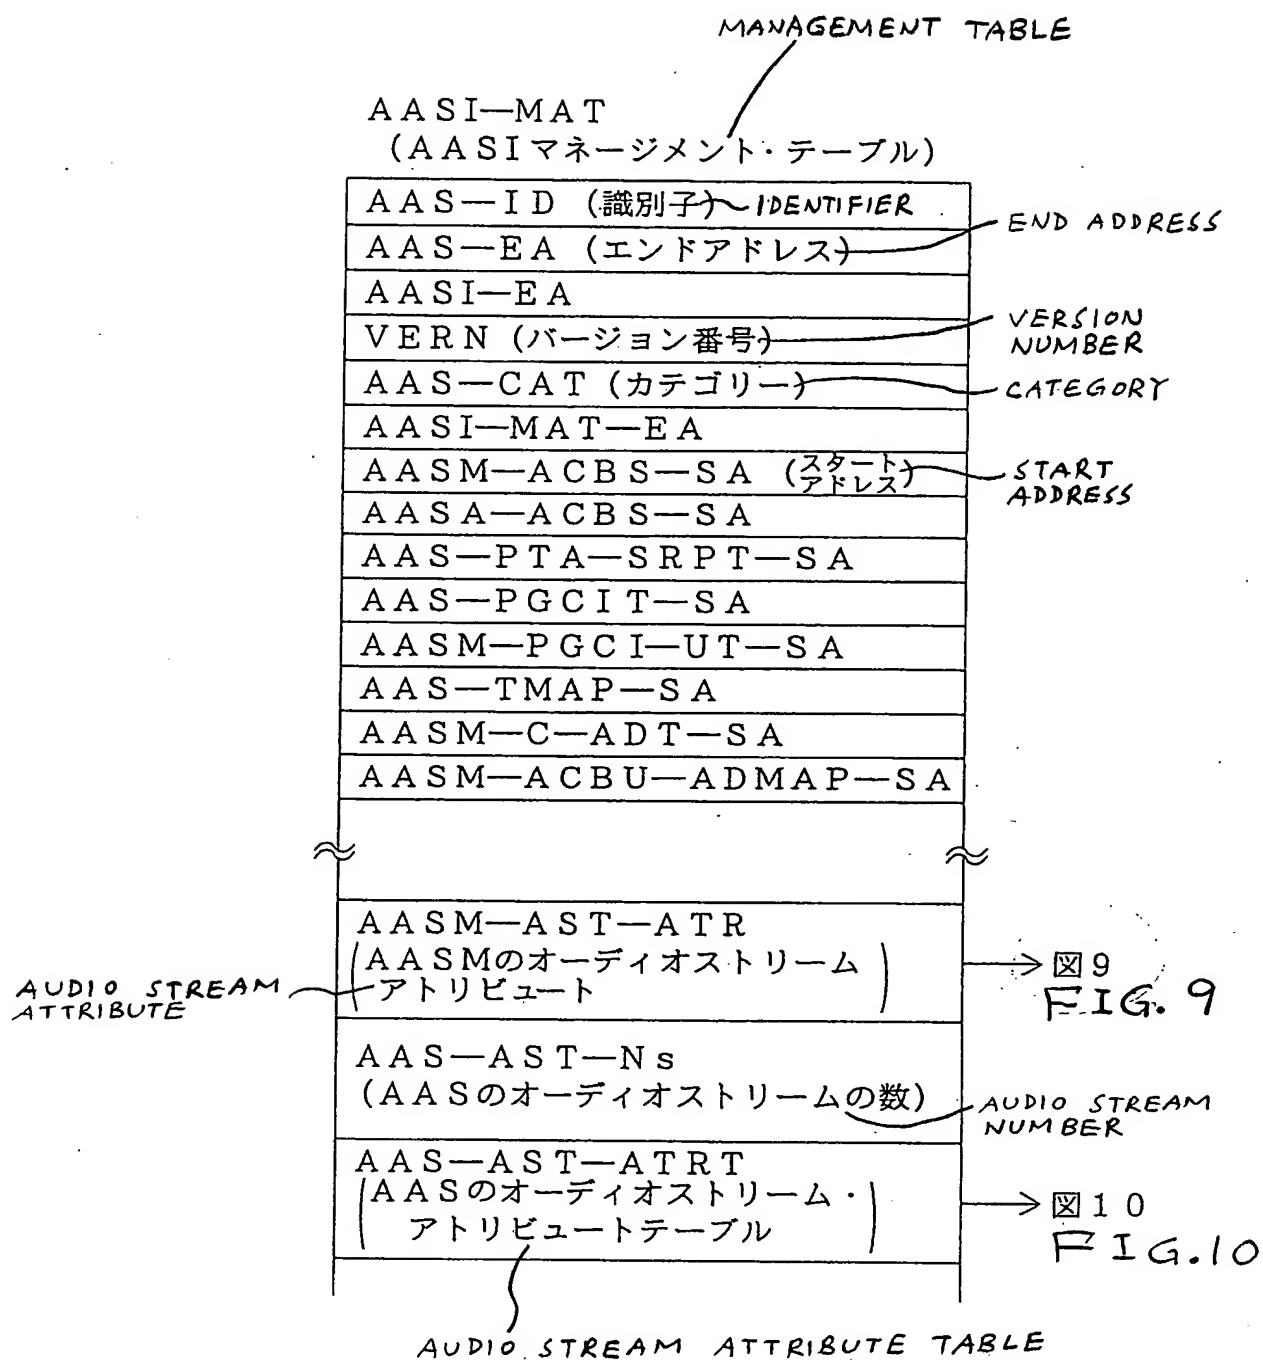 MANAGEMENT TABLE
AASI—MAT
(AASIマネージメント・テーブル)
AAS—ID (識別子) IDENTIFIER
END ADDRESS
AAS—EA (エンドアドレス)
AASI—EA
VERSION
NUMBER
VERN (バージョン番号)
AAS—CAT (カテゴリー)
CATEGORY
AASI—MAT—EA
AASM—ACBS—SA (スタート
アドレス)
START
ADDRESS
AASA—ACBS—SA
AAS—PTA—SRPT—SA
AAS—PGCIT—SA
AASM—PGCI—UT—SA
AAS—TMAP—SA
AASM—C—ADT—SA
AASM—ACBU—ADMAP—SA
AASM—AST—ATR
(AASMのオーディオストリーム
アトリビュート)
AUDIO STREAM
ATTRIBUTE
図9
FIG. 9
AAS—AST—Ns
(AASのオーディオストリームの数)
AUDIO STREAM
NUMBER
AAS—AST—ATRT
(AASのオーディオストリーム・
アトリビュートテーブル)
図10
FIG.10
AUDIO STREAM ATTRIBUTE TABLE